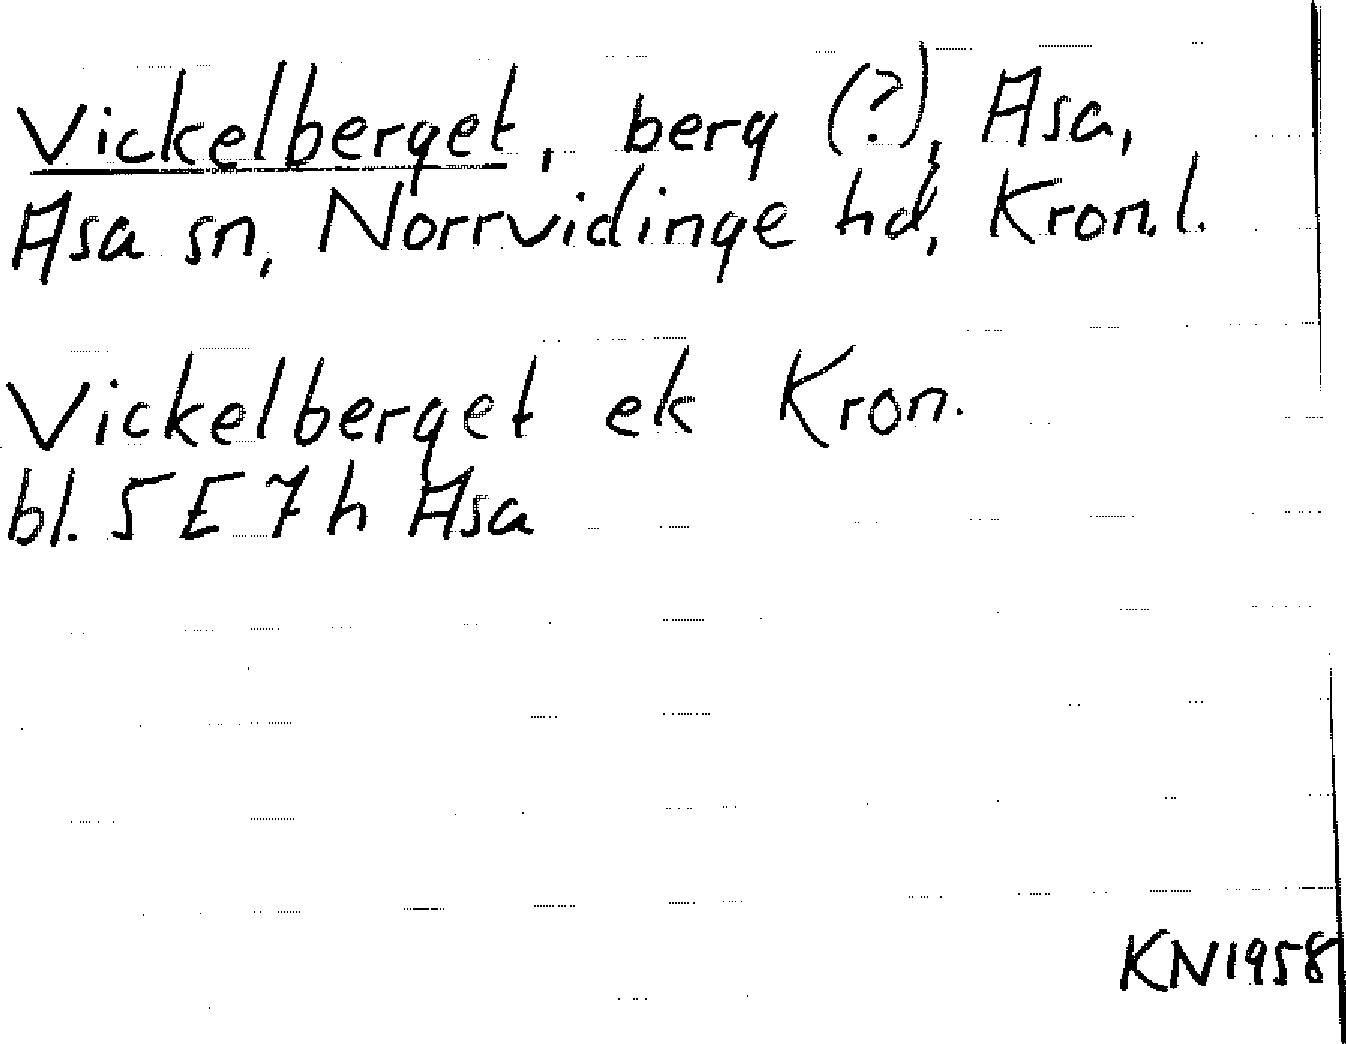 Vickelberget, berg (?), Asa,
Asa sn, Norrvidinge hd, Kron.l.
Vickelberget ek Kron.
bl. 5 E 7 h Asa
KN1958